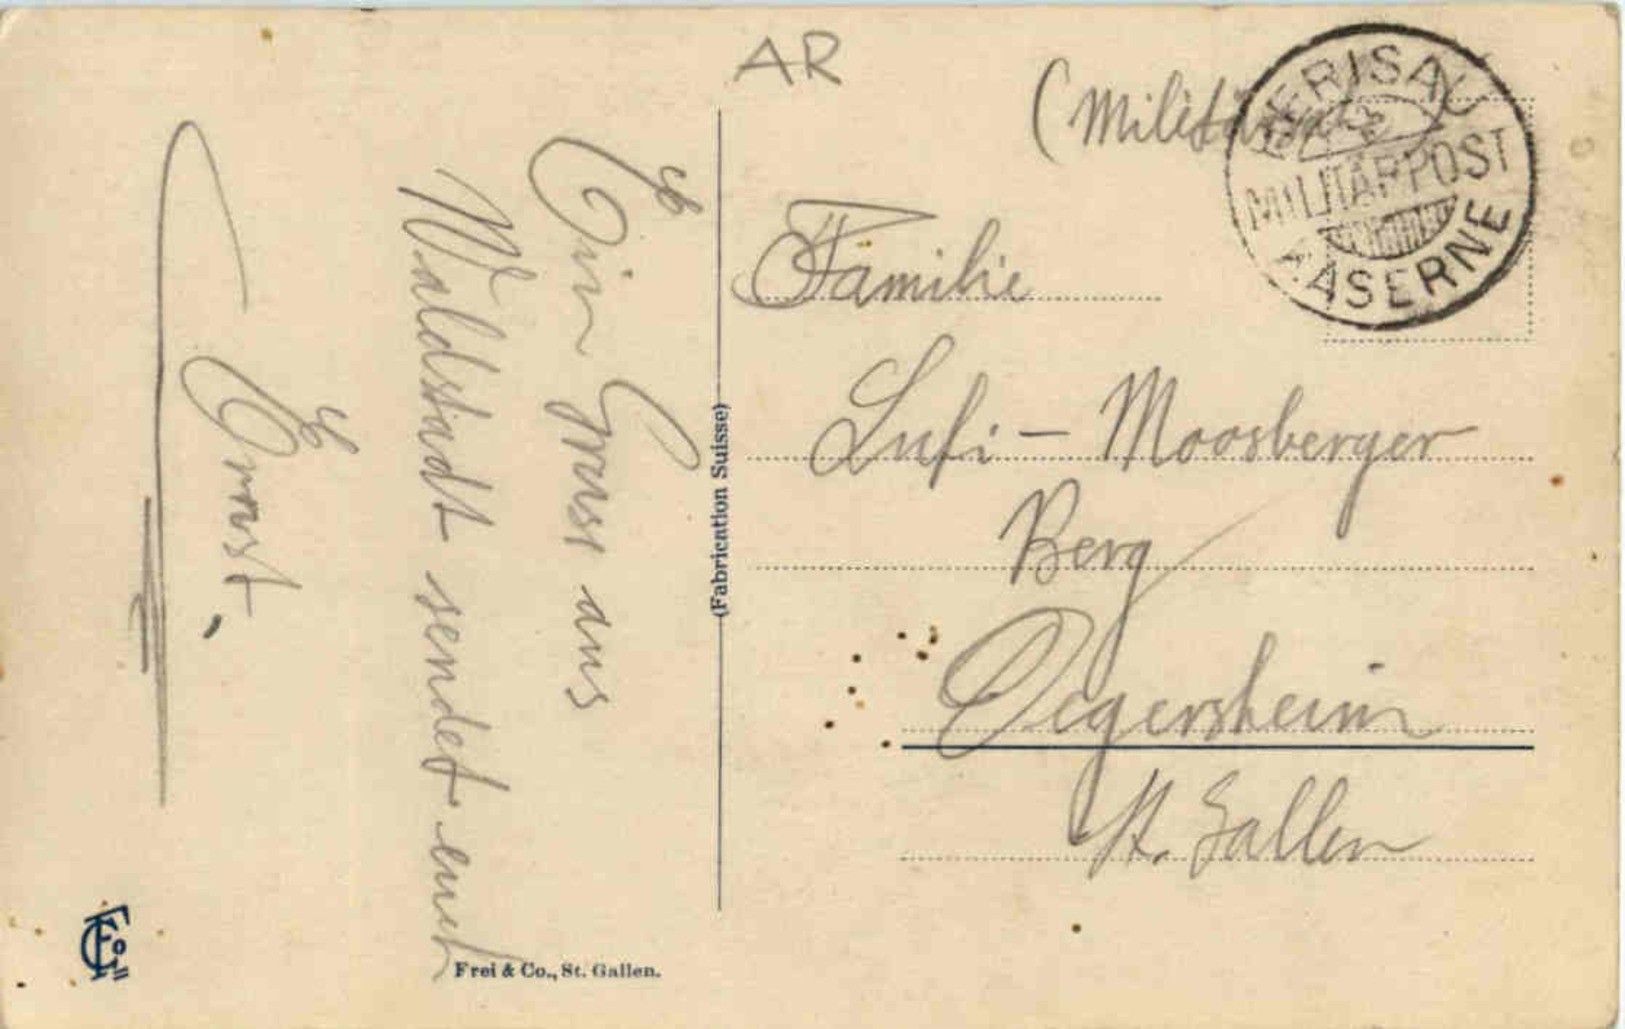 AR
(Militär
HERISAU
MILITÄRPOST
KASERNE
Ein Gruss aus
Waldstadt sendet euch
Ernst
Familie
Lufi - Moosberger
Berg
Degersheim
St. Gallen
(Fabrication Suisse)
Frei & Co., St. Gallen.